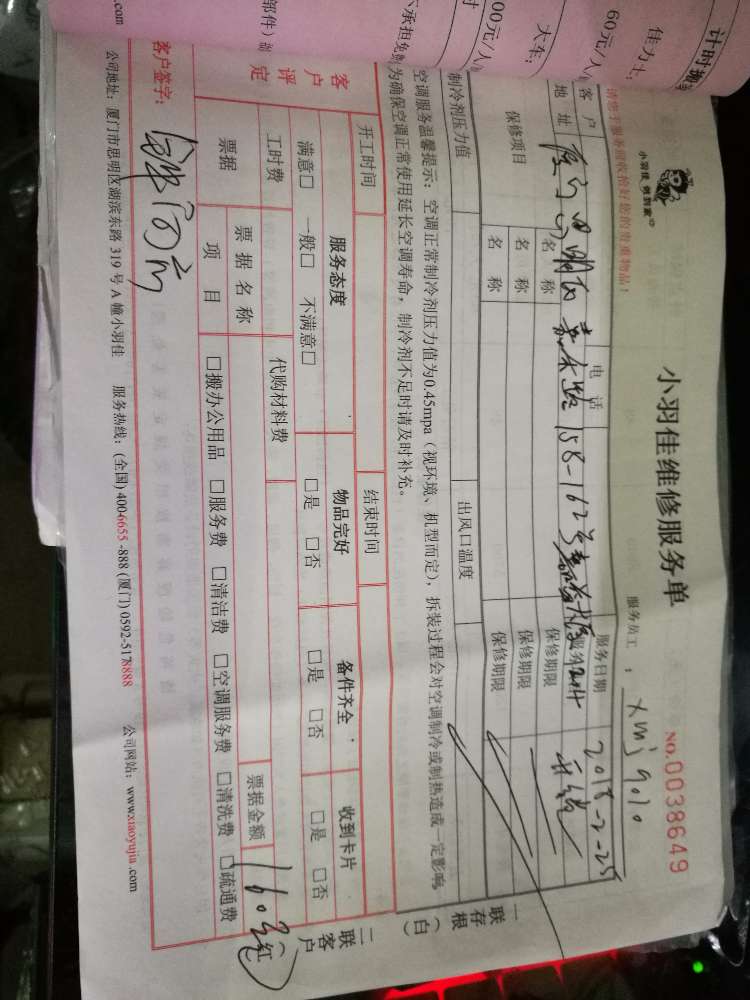 计时搬
佳力士:
60元/人
大车:
00元/人
不承担免
部件)
小羽佳 创到家
小羽佳维修服务单
服务员工: xmj9010
NO.0038649
请您于服务前收拾好您的贵重物品!
客户
电话
服务日期 2018-2-25
地址 厦门思明区嘉禾路158-162号
保修项目
名称
保修期限
名称
保修期限
名称
保修期限
制冷剂压力值
出风口温度
空调服务温馨提示: 空调正常制冷剂压力值为0.45mpa(视环境、机型而定), 拆装过程会对空调制冷或制热造成一定影响
为确保空调正常使用延长空调寿命, 制冷剂不足时请及时补充。
开工时间
结束时间
客户评定
服务态度
物品完好
备件齐全
收到卡片
满意□ 一般□ 不满意□
□是 □否
□是 □否
□是 □否
工时费
代购材料费
票据
票据名称
票据金额 160元
项目
□搬办公用品 □服务费 □清洁费 □空调服务费 □清洗费 □疏通费
客户签字:
公司地址: 厦门市思明区湖滨东路 319 号 A 幢小羽佳 服务热线: (全国) 4006655-888 (厦门) 0592-5178888 公司网站: www.xiaoyujia.com
一存根(白)
联
二客户(红)
联